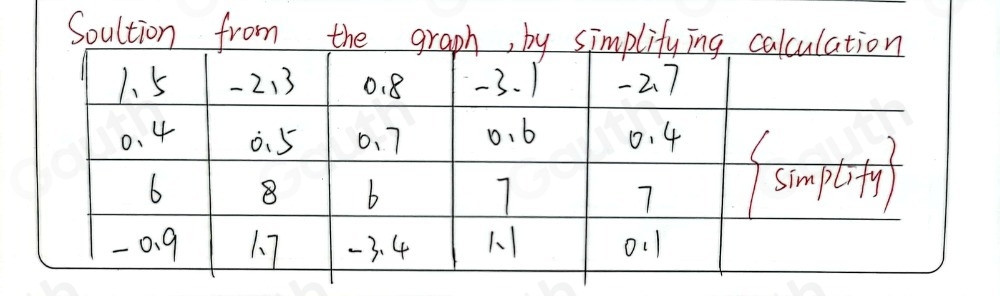 Soultion from the graph, by simplifying calculation
1.5 -2.3 0.8 -3.1 -2.7
0.4 0.5 0.7 0.6 0.4
6 8 6 7 7 {simplify}
-0.9 1.7 -3.4 1.1 0.1